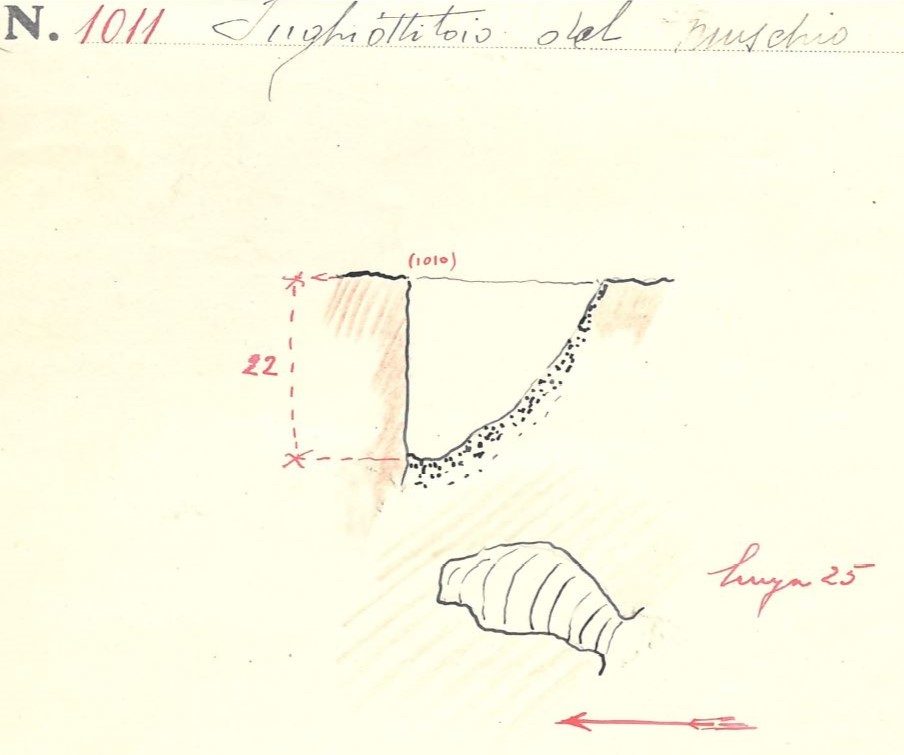 N. 1011 Inghiottitoio del Muschio
(1010)
22
lunga 25